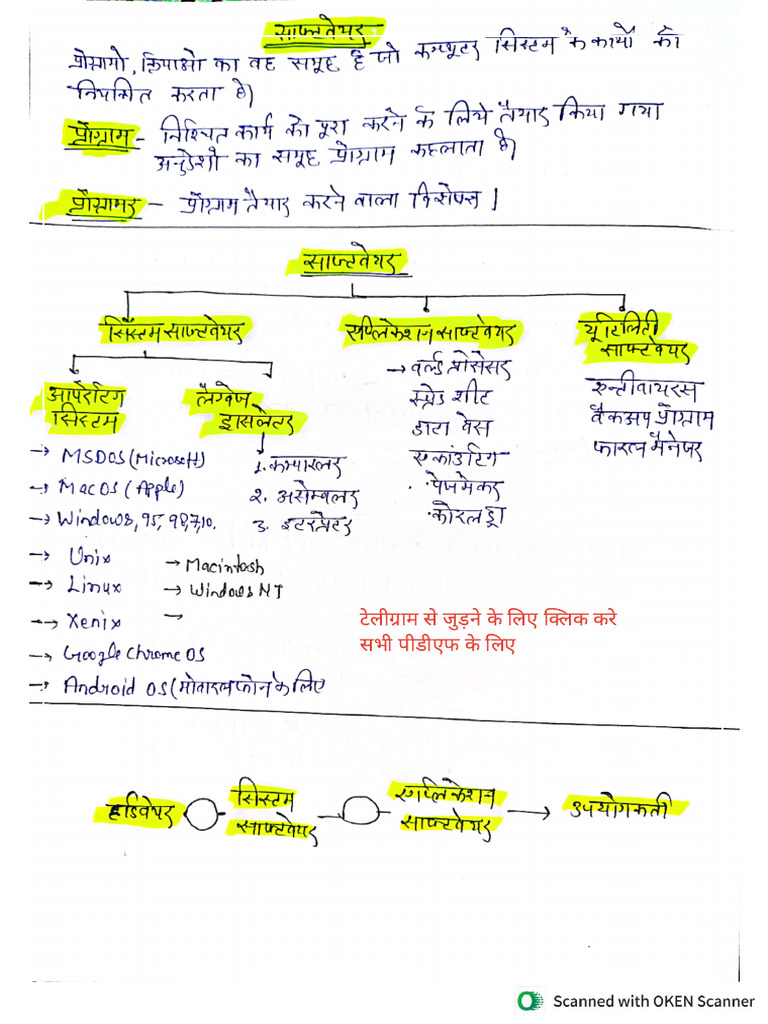 साफ्टवेयर
प्रोग्रामो, क्रियाओ का वह समूह है जो कम्प्यूटर सिस्टम के कार्यो को
नियंत्रित करता है।
प्रोग्राम - निश्चित कार्य को पूरा करने के लिये तैयार किया गया
अनुदेशों का समूह प्रोग्राम कहलाता है।
प्रोग्रामर - प्रोग्राम तैयार करने वाला विशेषज्ञ।
साफ्टवेयर
सिस्टम साफ्टवेयर
एप्लिकेशन साफ्टवेयर
यूटिलिटी
साफ्टवेयर
आपरेटिंग
सिस्टम
लैंग्वेज
ट्रांसलेटर
→ MSDOS (Microsoft)
→ MacOS (Apple)
→ Windows, 95, 98, 7, 10.
→ Unix
→ Linux
→ Xenix
→ Google Chrome OS
→ Android OS (मोबाइल फोन के लिए
→ Macintosh
→ Windows NT
→
1. कम्पाइलर
2. असेम्बलर
3. इंटरप्रेटर
→ वर्ल्ड प्रोसेसर
स्प्रेड शीट
डाटा बेस
एकाउंटिंग
· पेजमेकर
· कोरल ड्रा
एन्टीवायरस
बैकअप प्रोग्राम
फाइल मैनेजर
टेलीग्राम से जुड़ने के लिए क्लिक करे
सभी पीडीएफ के लिए
हार्डवेयर
सिस्टम
साफ्टवेयर
एप्लिकेशन
साफ्टवेयर
→ उपयोगकर्ता
Scanned with OKEN Scanner